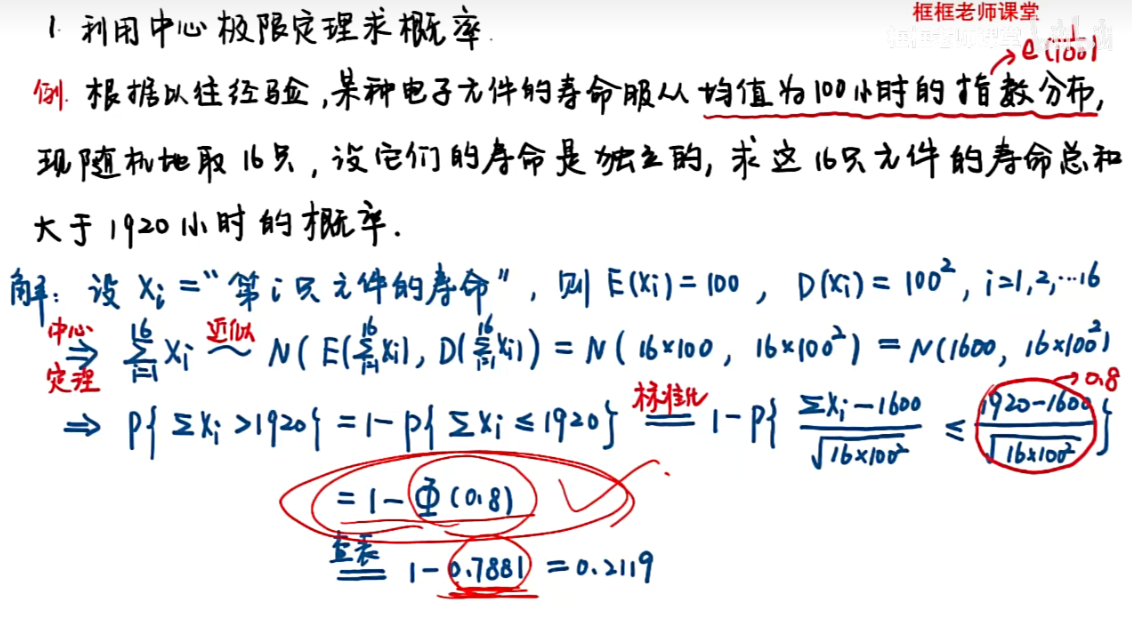 框框老师课堂
1. 利用中心极限定理求概率.
e(1/100)
例. 根据以往经验,某种电子元件的寿命服从均值为100小时的指数分布,
现随机地取16只,设它们的寿命是独立的,求这16只元件的寿命总和
大于1920小时的概率.
解: 设 Xi = "第i只元件的寿命", 则 E(Xi) = 100, D(Xi) = 100², i=1,2,…16
中心定理 ⇒ ∑_{i=1}^{16} Xi 近似 ~ N( E(∑_{i=1}^{16} Xi), D(∑_{i=1}^{16} Xi) ) = N( 16×100, 16×100² ) = N(1600, 16×100²)
⇒ P{ ∑Xi > 1920 } = 1 - P{ ∑Xi ≤ 1920 } 标准化 = 1 - P{ (∑Xi - 1600)/√(16×100²) ≤ (1920-1600)/√(16×100²) } → 0.8
= 1 - Φ(0.8)
查表 = 1 - 0.7881 = 0.2119